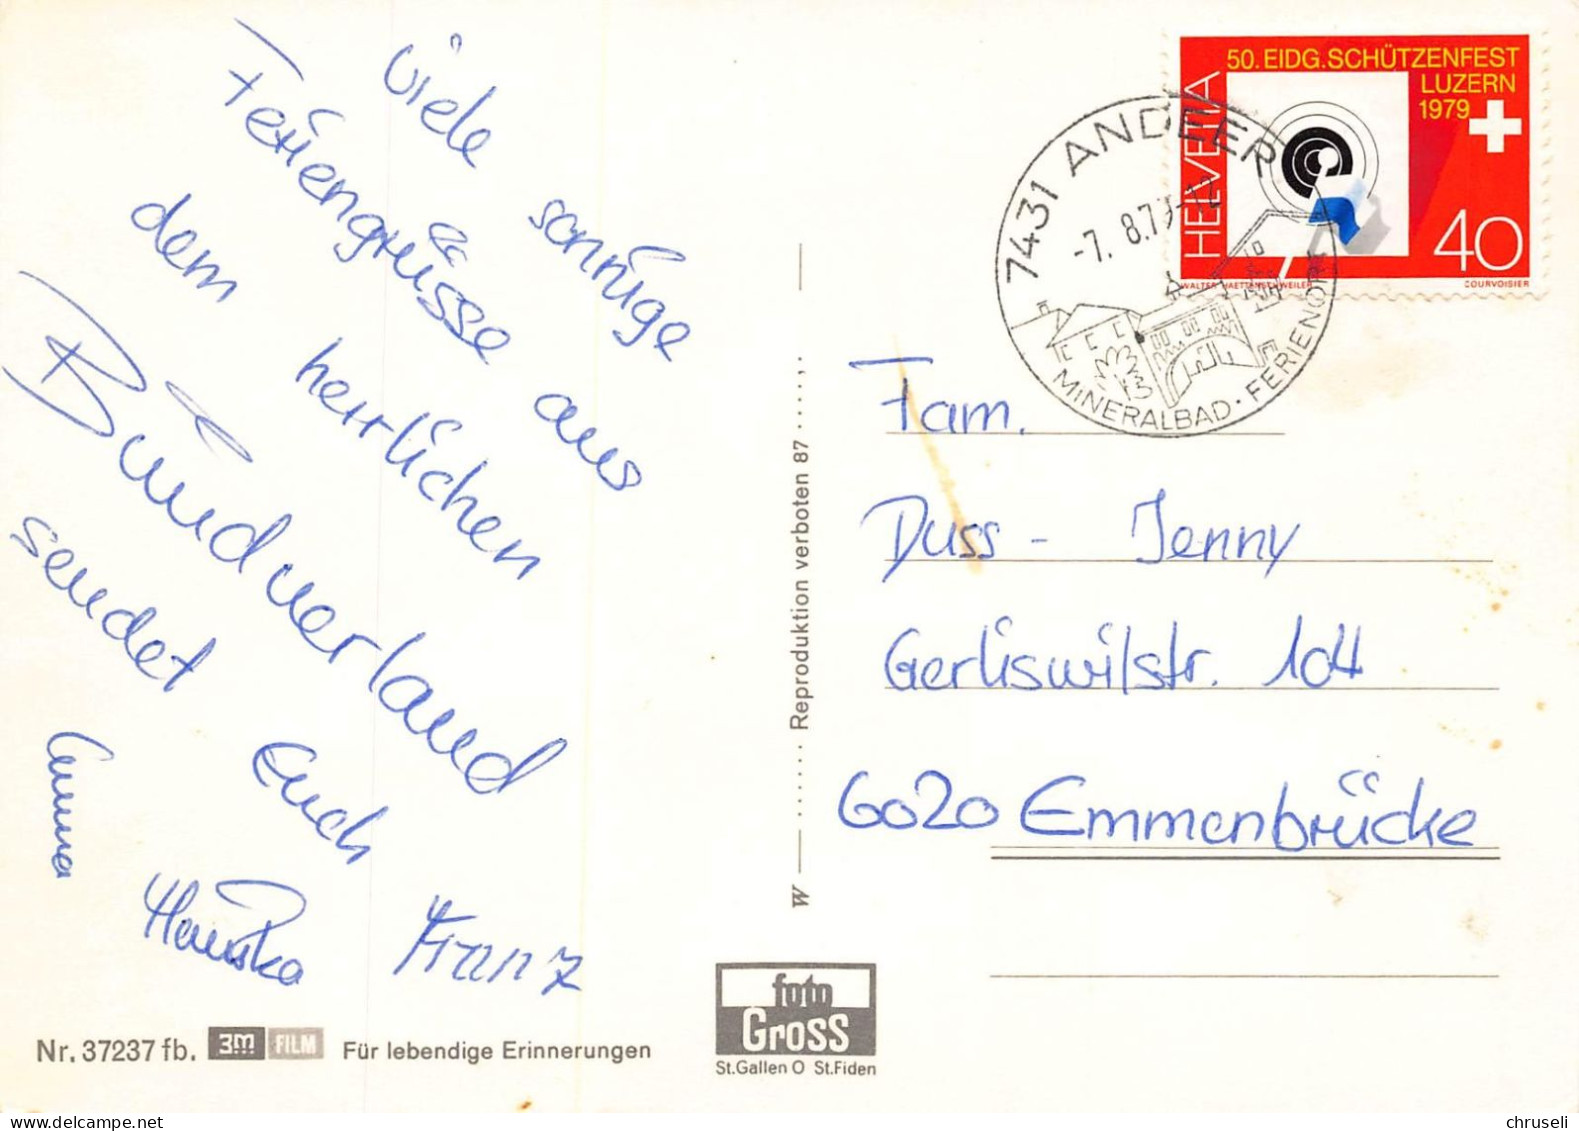 Viele sonnige
Feriengrüsse aus
dem herrlichen
Bündnerland
sendet Euch
Emma
Franz
Nr. 37237 fb. 3m FILM Für lebendige Erinnerungen
W Reproduktion verboten 87
foto
Gross
St.Gallen O St.Fiden
50. EIDG. SCHÜTZENFEST
LUZERN
1979
HELVETIA
40
WALTER HAETTENSCHWEILER COURVOISIER
7431 ANDEER
-7. 8.79-12
MINERALBAD · FERIENORT
Fam.
Duss - Jenny
Gerliswilstr. 104
6020 Emmenbrücke
chruseli